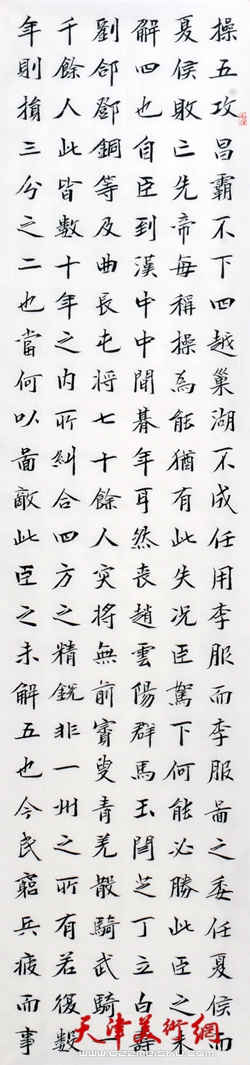 操五攻昌霸不下四越巢湖不成任用李服而李服啚之委任夏侯而
夏侯敗亡先帝每稱操為能猶有此失况臣駑下何能必勝此臣之未
解四也自臣到漢中中間朞年耳然喪趙雲陽群馬玉閻芝丁立白壽
劉郃鄧銅等及曲長屯將七十餘人突將無前賨叟青羌散騎武騎一
千餘人此皆數十年之内所糾合四方之精銳非一州之所有若復數
年則損三分之二也當何以啚敵此臣之未解五也今民窮兵疲而事
天津美術網